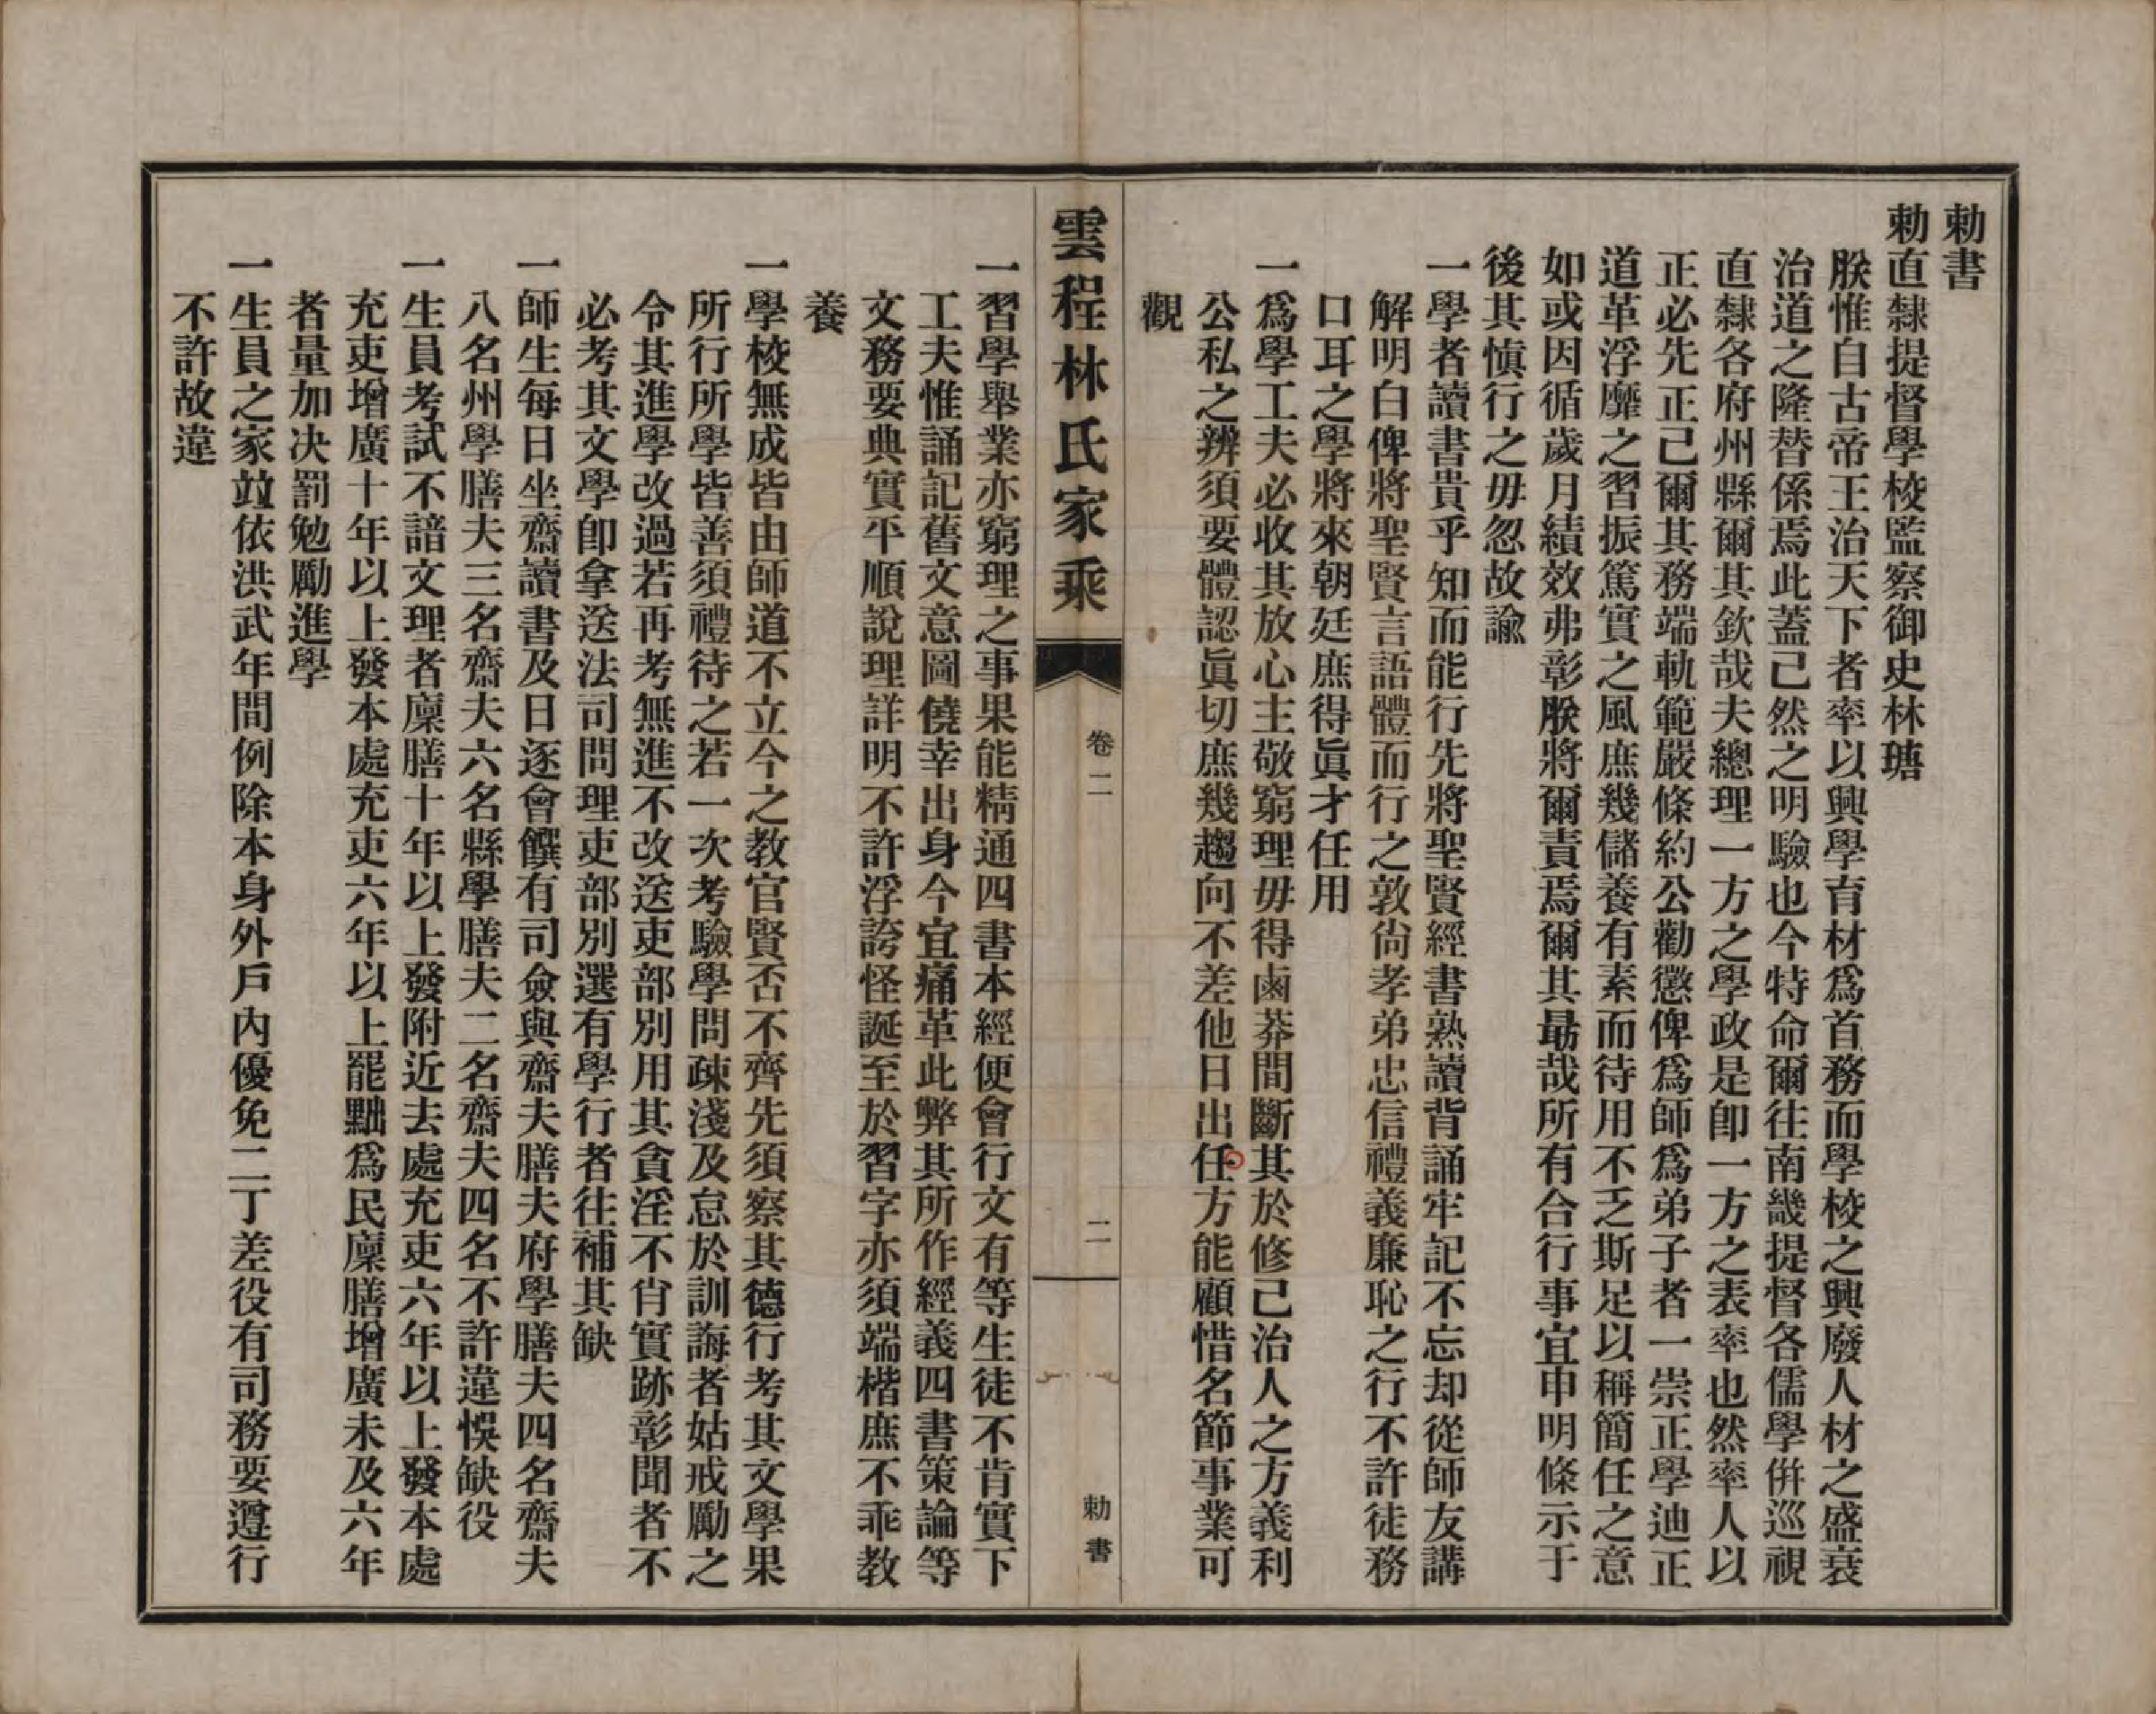 勅書
勅直隸提督學校監察御史林瑭
朕惟自古帝王治天下者率以興學育材爲首務而學校之興廢人材之盛衰
治道之隆替係焉此蓋己然之明驗也今特命爾往南畿提督各儒學倂巡視
直隸各府州縣爾其欽哉夫總理一方之學政是卽一方之表率也然率人以
正必先正己爾其務端軌範嚴條約公勸懲俾爲師爲弟子者一崇正學迪正
道革浮靡之習振篤實之風庶幾儲養有素而待用不乏斯足以稱簡任之意
如或因循歲月績效弗彰朕將爾責焉爾其勗哉所有合行事宜申明條示于
後其愼行之毋忽故諭
一學者讀書貴乎知而能行先將聖賢經書熟讀背誦牢記不忘却從師友講
解明白俾將聖賢言語體而行之敦尙孝弟忠信禮義廉恥之行不許徒務
口耳之學將來朝廷庶得眞才任用
一爲學工夫必收其放心主敬窮理毋得鹵莽間斷其於修己治人之方義利
公私之辨須要體認眞切庶幾趨向不差他日出任方能顧惜名節事業可
觀
雲程林氏家乘
卷二
二
勅書
一習學舉業亦窮理之事果能精通四書本經便會行文有等生徒不肯實下
工夫惟誦記舊文意圖僥幸出身今宜痛革此弊其所作經義四書策論等
文務要典實平順說理詳明不許浮誇怪誕至於習字亦須端楷庶不乖教
養
一學校無成皆由師道不立今之教官賢否不齊先須察其德行考其文學果
所行所學皆善須禮待之若一次考驗學問疎淺及怠於訓誨者姑戒勵之
令其進學改過若再考無進不改送吏部別用其貪淫不肖實跡彰聞者不
必考其文學卽拿送法司問理吏部別選有學行者往補其缺
一師生每日坐齋讀書及日逐會饌有司僉與齋夫膳夫府學膳夫四名齋夫
八名州學膳夫三名齋夫六名縣學膳夫二名齋夫四名不許違悞缺役
一生員考試不諳文理者廩膳十年以上發附近去處充吏六年以上發本處
充吏增廣十年以上發本處充吏六年以上罷黜爲民廩膳增廣未及六年
者量加決罰勉勵進學
一生員之家竝依洪武年間例除本身外戶內優免二丁差役有司務要遵行
不許故違